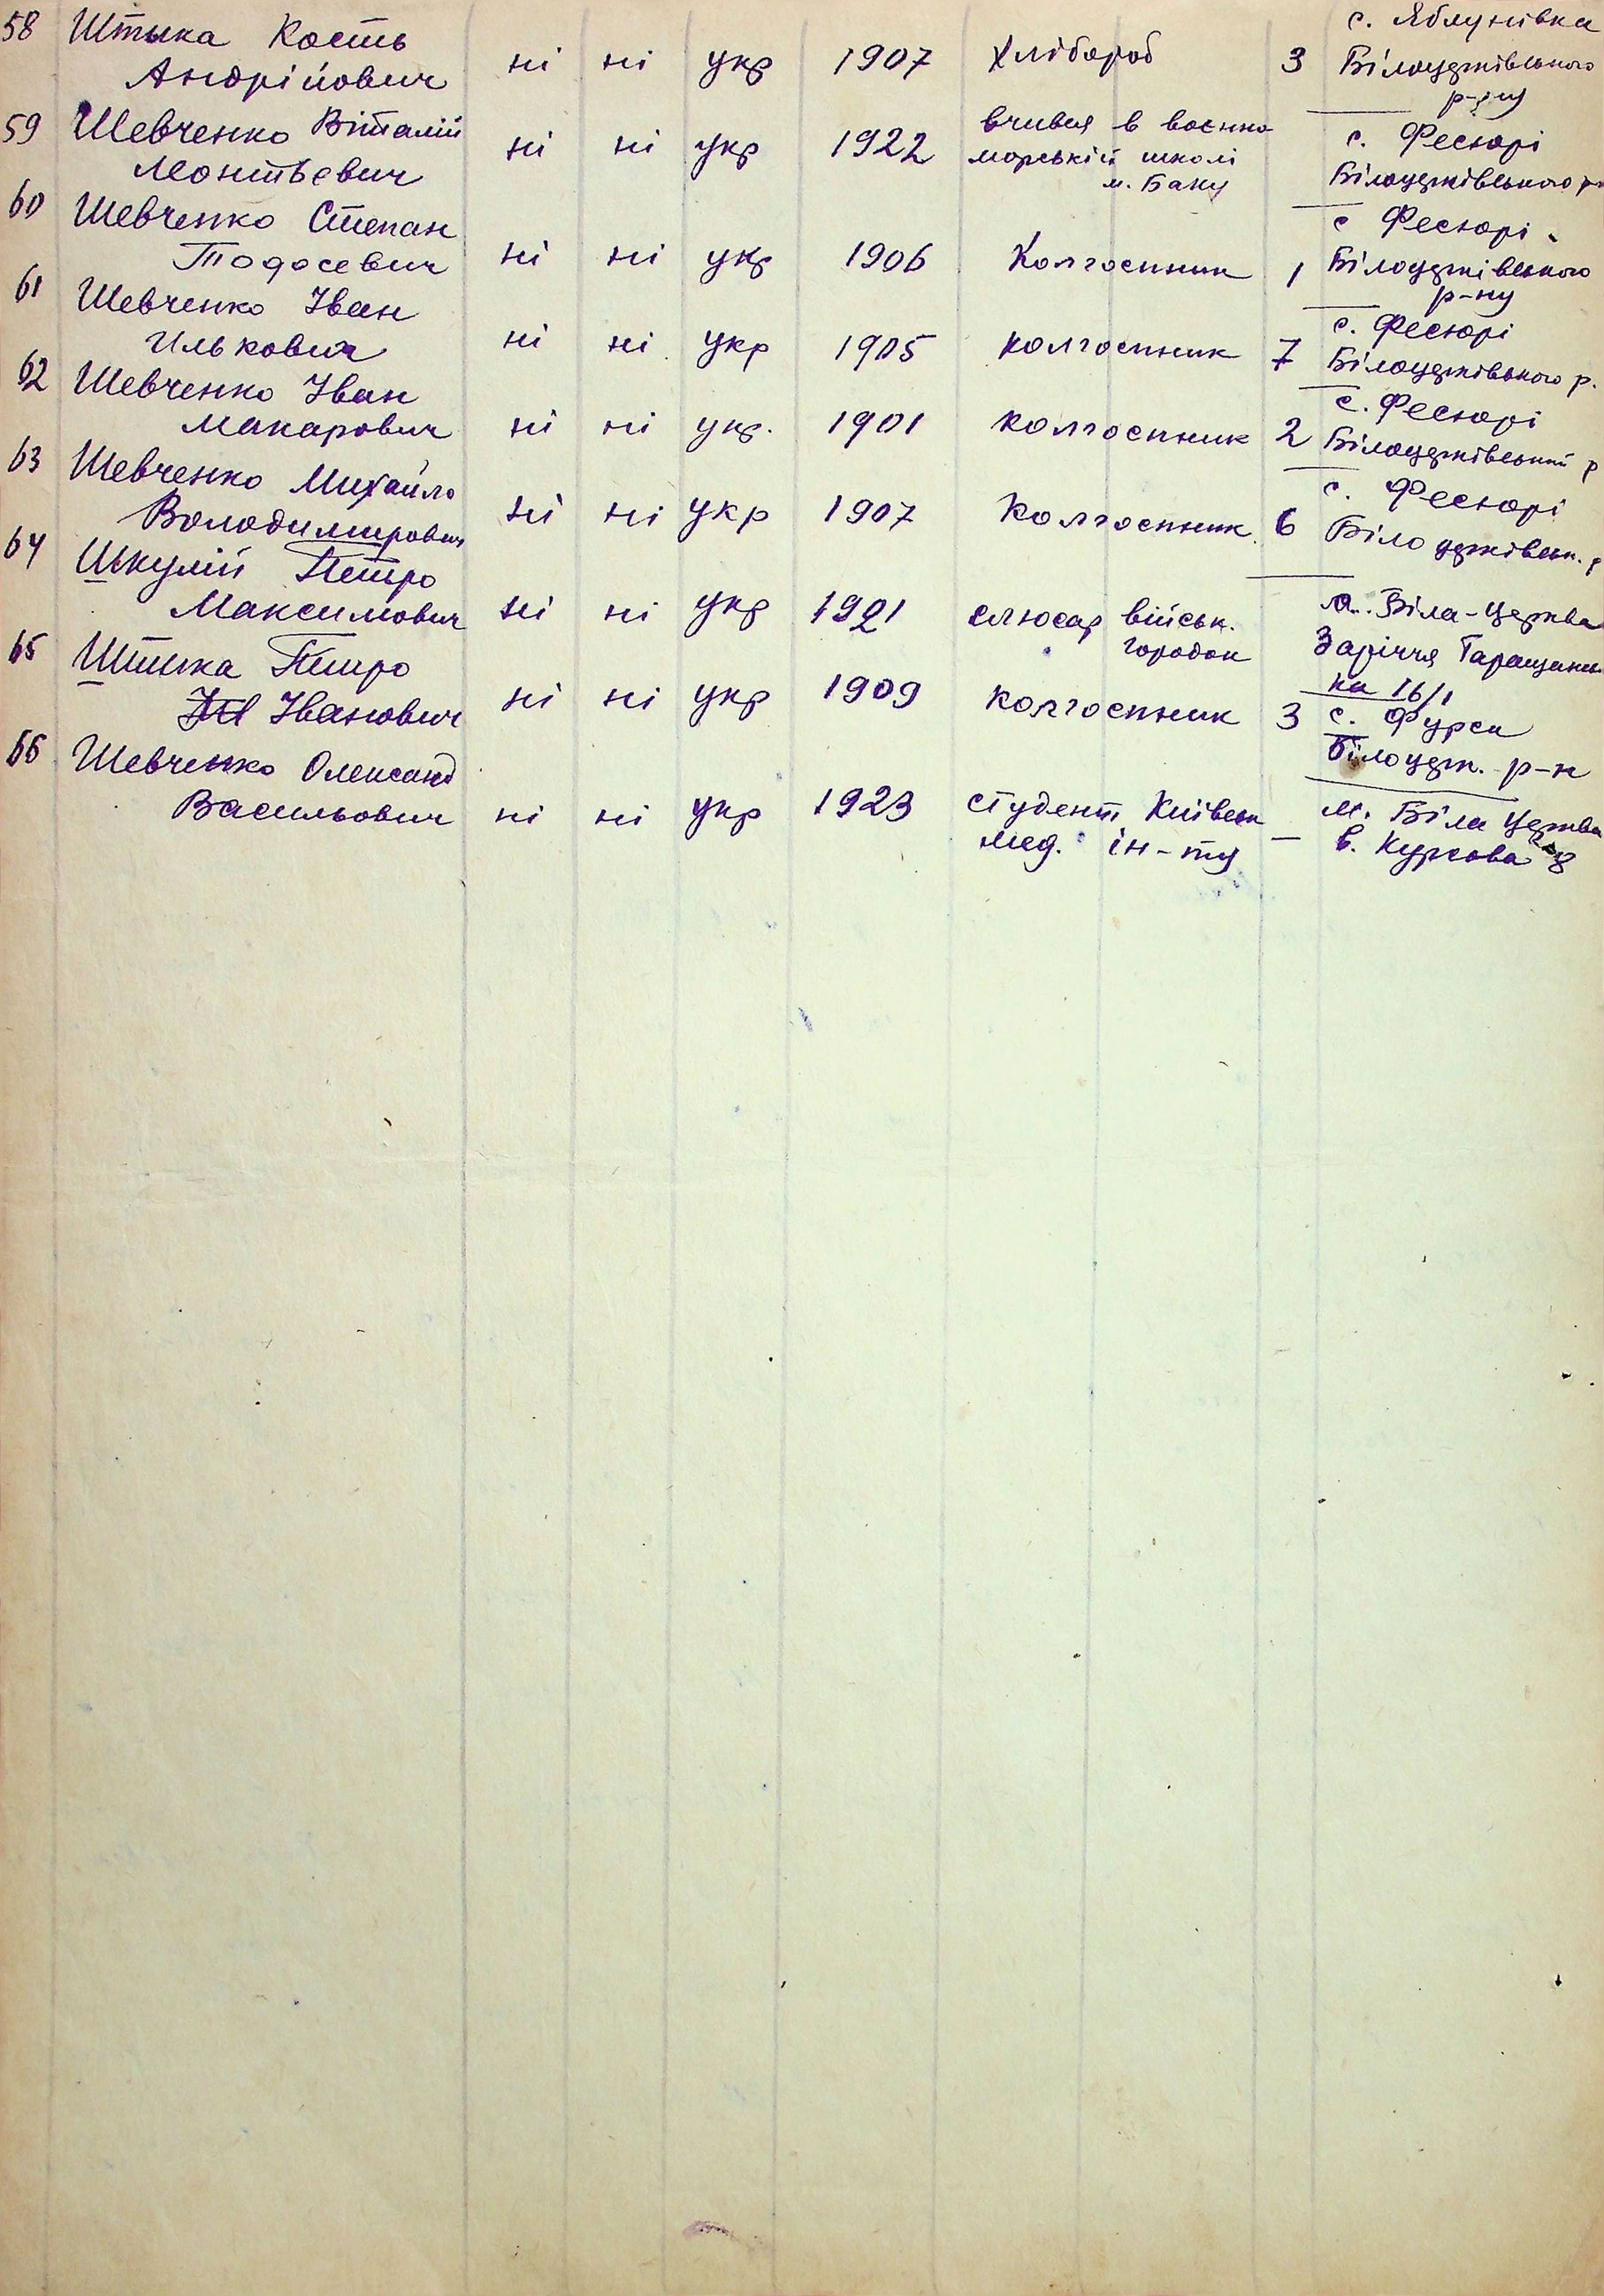 58 Штыка Кость с. Яблунівка
Андрійович ні ні укр 1907 Хлібороб 3 Білоцерківського
р-ну
59 Шевченко Віталій вчився в воєнно
Монтьєвич ні ні укр 1922 морській школі с. Фесюрі
м. Баку Білоцерківського р-
60 Шевченко Степан с Фесюрі
Тодосевич ні ні укр 1906 Колгоспник 1 Білоцерківського
р-ну
61 Шевченко Іван с. Фесюрі
Илькович ні ні укр 1905 колгоспник 7 Білоцерківського р.
62 Шевченко Іван с. Фесюрі
Макарович ні ні укр. 1901 колгоспник 2 Білоцерківський р
63 Шевченко Михайло с. Фесюрі
Володимирович ні ні укр 1907 Колгоспник 6 Білоцерківськ. р
64 Шкулій Петро
Максимович ні ні укр 1921 слюсар військ. м. Біла-Церква
городок Заріччя Таращансь
ка 16/1
65 Штика Петро
Іванович ні ні укр 1909 колгоспник 3 с. Фурси
Білоцерк. р-н
66 Шевченко Олександ
Васильович ні ні укр 1923 студент Київськ м. Біла Церква
мед. ін-ту — в. Курсова 28